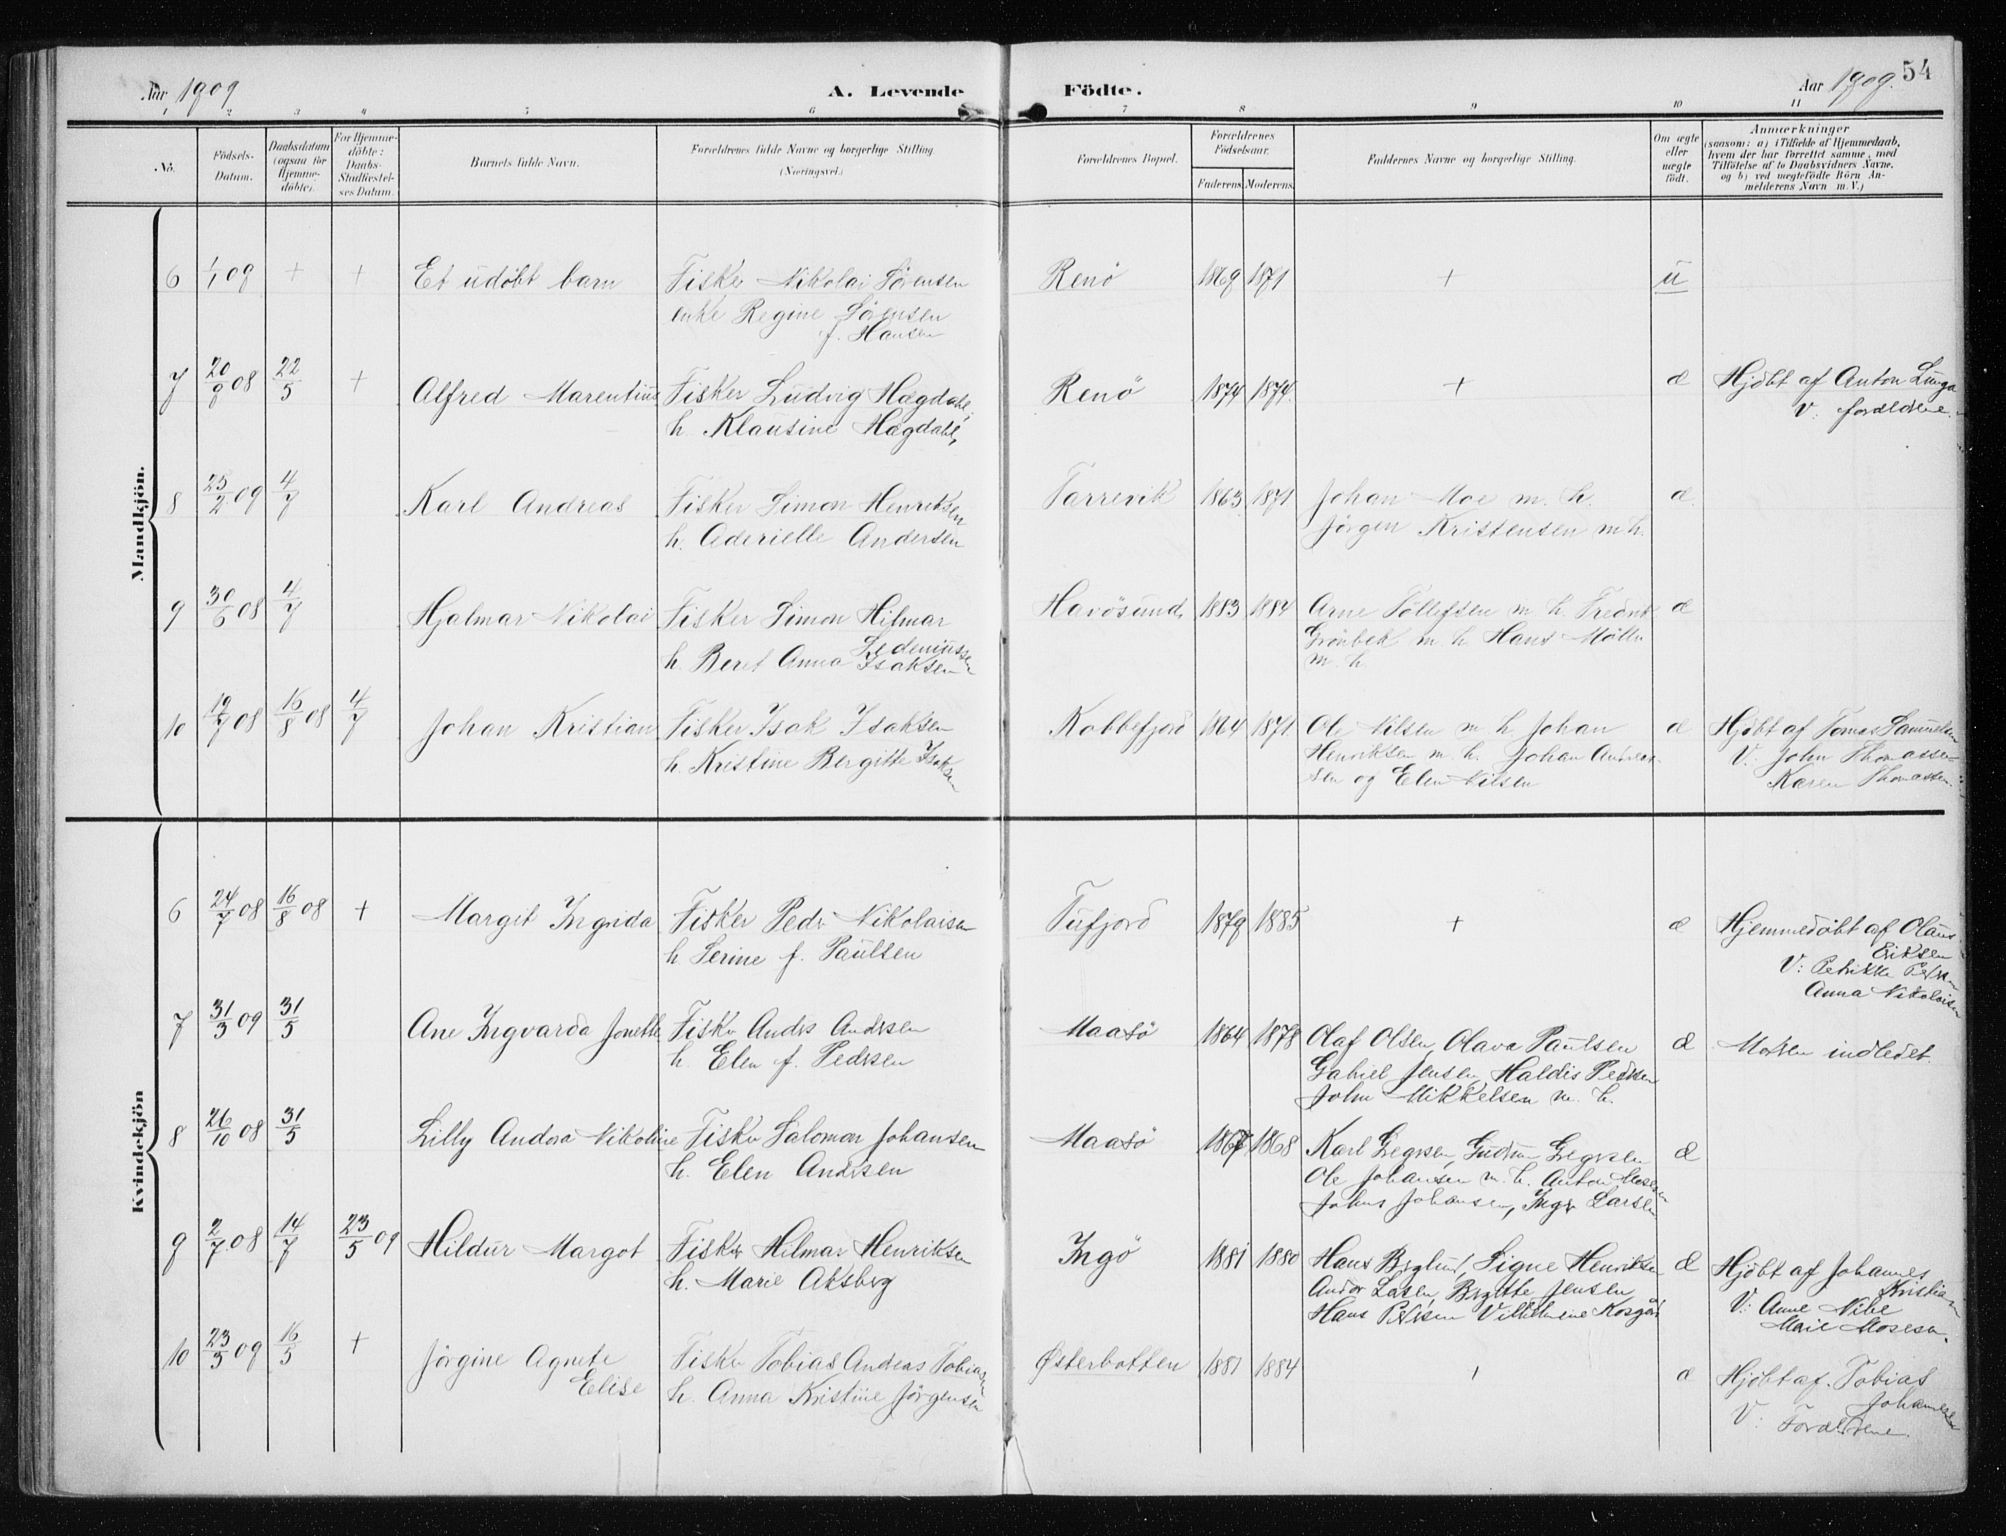 Aar 1909
A. Levende Födte.
Aar 1909.
54
1 2 3 4 5 6 7 8 9 10 11
No.
Födsels-
Datum.
Daabsdatum
(ogsaa for
Hjemme-
döbte).
For Hjemme-
döbte:
Daabs-
Stadfæstel-
ses Datum.
Barnets fulde Navn.
Forældrenes fulde Navne og borgerlige Stilling
(Næringsvei.)
Forældrenes Bopæl.
Forældrenes
Födselsaar.
Faderens. Moderens.
Faddernes Navne og borgerlige Stilling.
Om ægte
eller
uægte
födt.
Anmærkninger
(saasom: a) i Tilfælde af Hjemmedaab,
hvem der har forrettet samme, med
Tilföielse af to Daabsvidners Navne.
og b) ved uægtefödte Börn An-
melderens Navn m. V.)
Mandkjön.
6 1/1 09 + + Et udöbt barn Fisker Nikolai Sörensen Renö 1869 1871 + u
enke Regine Sörensen
f. Hansen
7 20/9 08 22/5 + Alfred Marentius Fisker Ludvig Hægdahl, Renö 1874 1874 + æ Hjöbt af Anton Lunga
h. Klausine Hægdahl, V: forældrene.
8 25/2 09 4/7 Karl Andreas Fisker Simon Henriksen Tarrevik 1863 1871 Johan Moe m. h. æ
h. Aderielle Andersen Jörgen Kristensen m h.
9 30/6 08 4/7 Hjalmar Nikolai Fisker Simon Hilmar Havösund, 1883 1884 Arne Tollefsen m h. Fredrik æ
Ledeniussen Grönbek m h Hans Möller
h Beret Anna Isaksen m. h
10 19/7 08 16/8 08 4/7 Johan Kristian Fisker Isak Isaksen Kobbefjord 1864 1871 Ole Nilsen m h. Johan æ Hjöbt af Tomas Samuelsen
h. Kristine Bergitte Isaksen Henriksen m h. Johan Andreas- V: John Thomassen
sen og Elen Nilsen Karen Thomassen.
Kvindekjön
6 24/7 08 16/8 08 + Marget Ingrida Fisker Peder Nikolaisen Tufjord 1879 1885 + æ Hjemmedöbt af Olaus
Eriksen
h. Serine f. Paulsen V: Petrikke Petersen
Anna Nikolaisen
7 31/3 09 31/5 Ane Ingvarda Jonette Fisker Anders Andersen Maasö 1864 1878 Olaf Olsen, Olava Paulsen æ Moderen indledet.
h. Elen f. Pedersen Gabriel Jensen, Haldis Pedersen
John Mikkelsen m. h.
8 26/10 08 31/5 Lilly Andora Nikoline Fisker Salomon Johansen Maasö 1867 1868 Karl Gregersen, Gudrun Gregersen æ
h. Elen Andersen Ole Johansen m. h. Anton Mosesen
Johns Johansen, Inger Larsen
9 2/7 08 14/7 23/5 09 Hildur Margot Fisker Hilmar Henriksen Ingö 1881 1880 Hans Berglund, Signe Henriksen æ Hjöbt af Johannes
Kristian
h. Marie Aksberg Andor Lasen, Bergitte Jensen V: Anne Nibe
Hans Petersen Vilhelmine Kosgård Marie Mosesen.
10 23/3 09 16/5 + Jörgine Agnete Fisker Tobias Andreas Tobiassen Østerbotten 1881 1884 + æ Hjöbt af. Tobias
Elise Johannesen
h. Anna Kristine Jörgensen V: Forældrene.